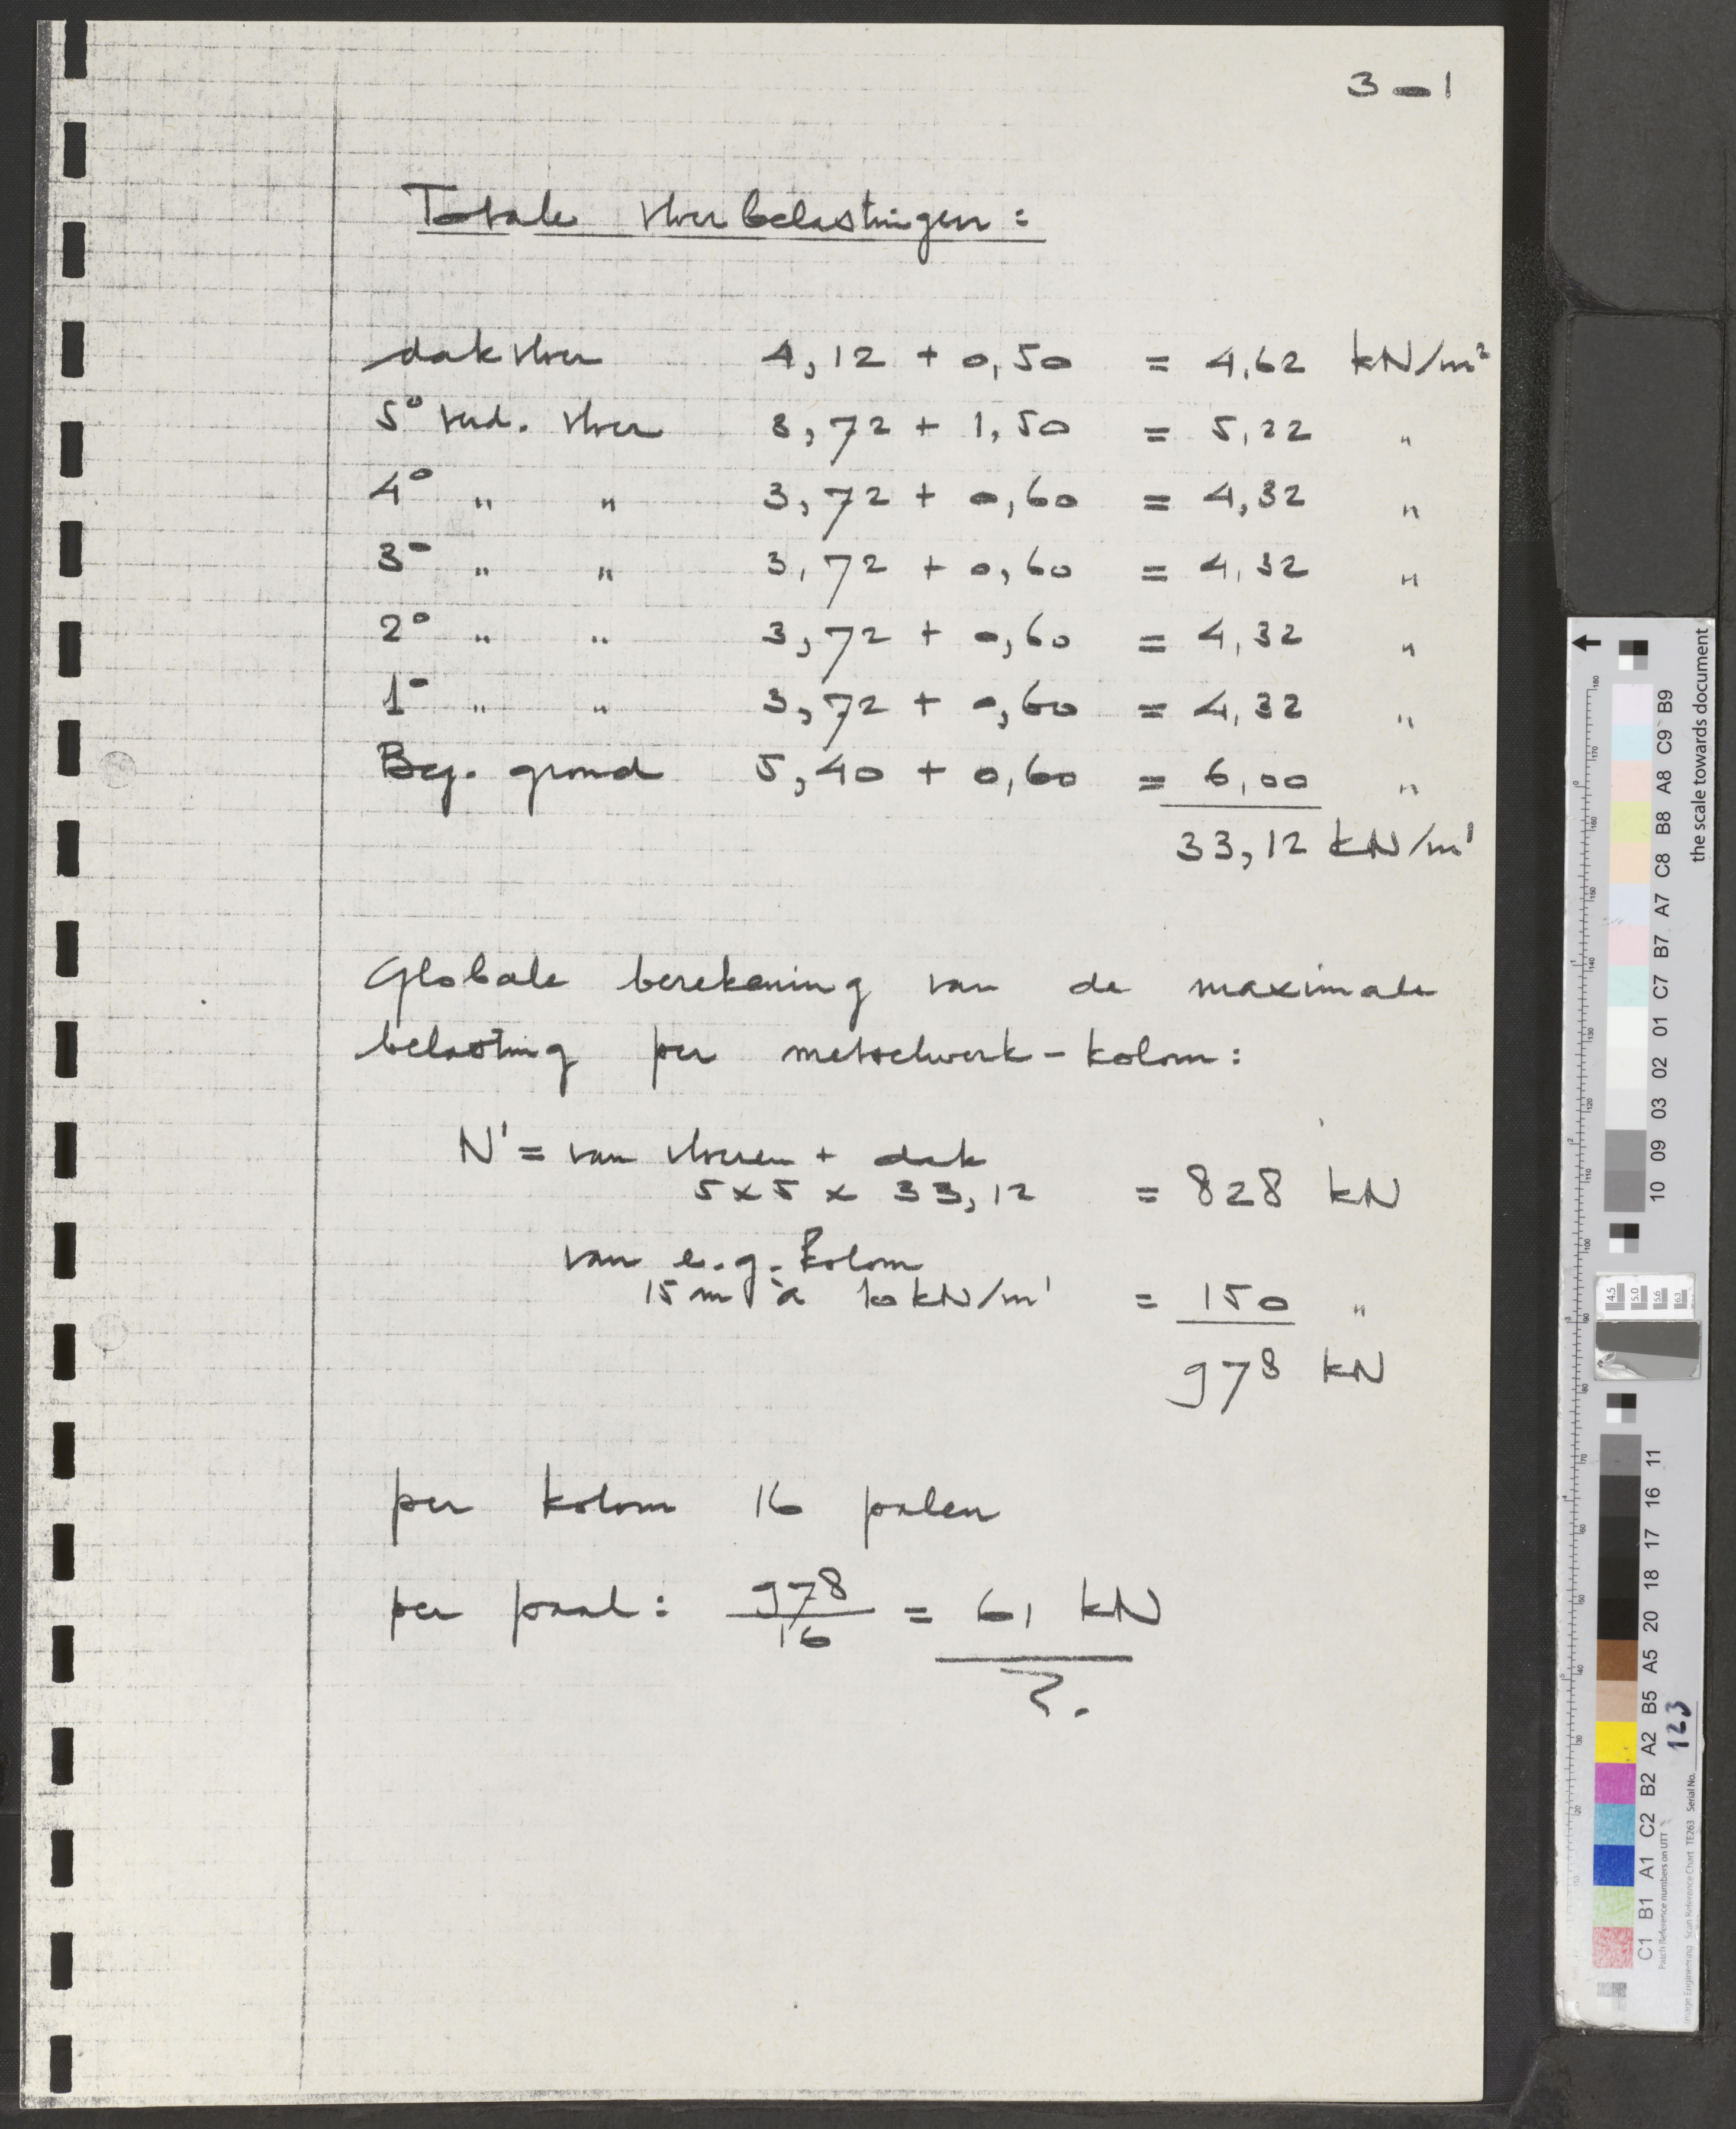 3-1
Totale vloerbelastingen:
dakvloer 4,12 + 0,50 = 4,62 kN/m²
5° verd. vloer 3,72 + 1,50 = 5,22 "
4° " " 3,72 + 0,60 = 4,32 "
3° " " 3,72 + 0,60 = 4,32 "
2° " " 3,72 + 0,60 = 4,32 "
1° " " 3,72 + 0,60 = 4,32 "
Beg. grond 5,40 + 0,60 = 6,00 "
33,12 kN/m'
Globale berekening van de maximale
belasting per metselwerk-kolom:
N' = van vloeren + dak
5 x 5 x 33,12 = 828 kN
van e.g. kolom
15 m à 10 kN/m' = 150 "
978 kN
per kolom 16 palen
per paal: 978/16 = 61 kN
?.
the scale towards document
B9 C9 A8 B8 C8 A7 B7 C7 01 02 03 09 10
11 16 17 18 20 A5 B5 A2 B2 C2 A1 B1 C1
4.5 5.0 5.6 6.3
123
Patch Reference numbers on UTT
Image Engineering Scan Reference Chart TE263 Serial No.